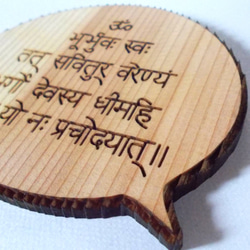 ॐ
भूर्भुवः स्वः
तत् सवितुर् वरेण्यं
देवस्य धीमहि
यो नः प्रचोदयात्॥